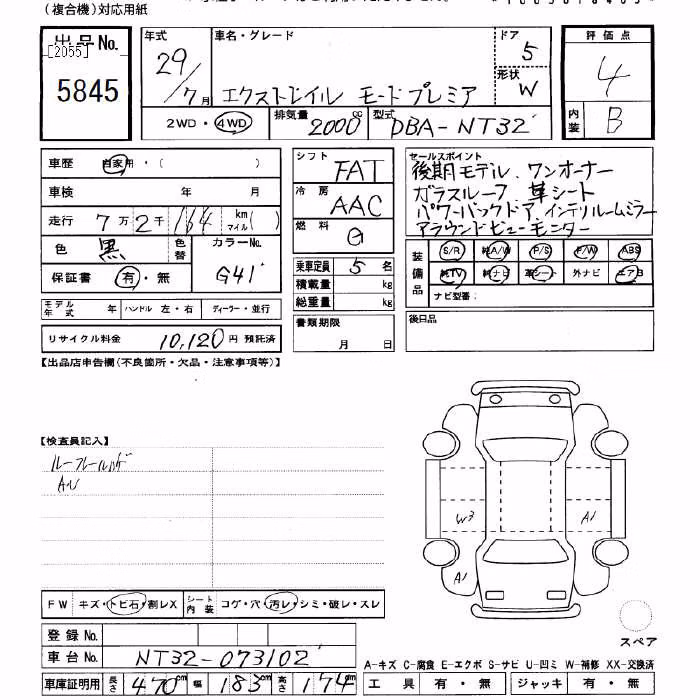 (複合機)対応用紙
出品No. [2055] 5845
年式 29/7月
車名・グレード エクストレイル モードプレミア
ドア 5
形状 W
2WD・4WD 排気量 2000cc 型式 DBA-NT32
評価点 4
内装 B
車歴 自家用・( )
車検 年 月
走行 7万2千164km マイル( )
色 黒 色替 カラーNo. G41
保証書 有・無
モデル年式 年 ハンドル 左・右 ディーラー・並行
リサイクル料金 10,120円 預託済
シフト FAT
冷房 AAC
燃料 G
乗車定員 5名
積載量 kg
総重量 kg
書類期限 月 日
セールスポイント
後期モデル、ワンオーナー
ガラスルーフ、革シート
パワーバックドア、インテリルームミラー
アラウンドビューモニター
装備品 S/R 純A/W P/S P/W ABS
純TV 純ナビ 革シート 外ナビ エアB
ナビ型番:
後日品
【出品店申告欄(不良箇所・欠品・注意事項等)】
【検査員記入】
AW
W3
A1
A1
FW キズ・トビ石・割レX シート内装 コゲ・穴・汚レ・シミ・破レ・スレ
登録No.
車台No. NT32-073102
車庫証明用 長さ 470cm 幅 183cm 高さ 174cm
スペア
A-キズ C-腐食 E-エクボ S-サビ U-凹ミ W-補修 XX-交換済
工具 有・無 ジャッキ 有・無